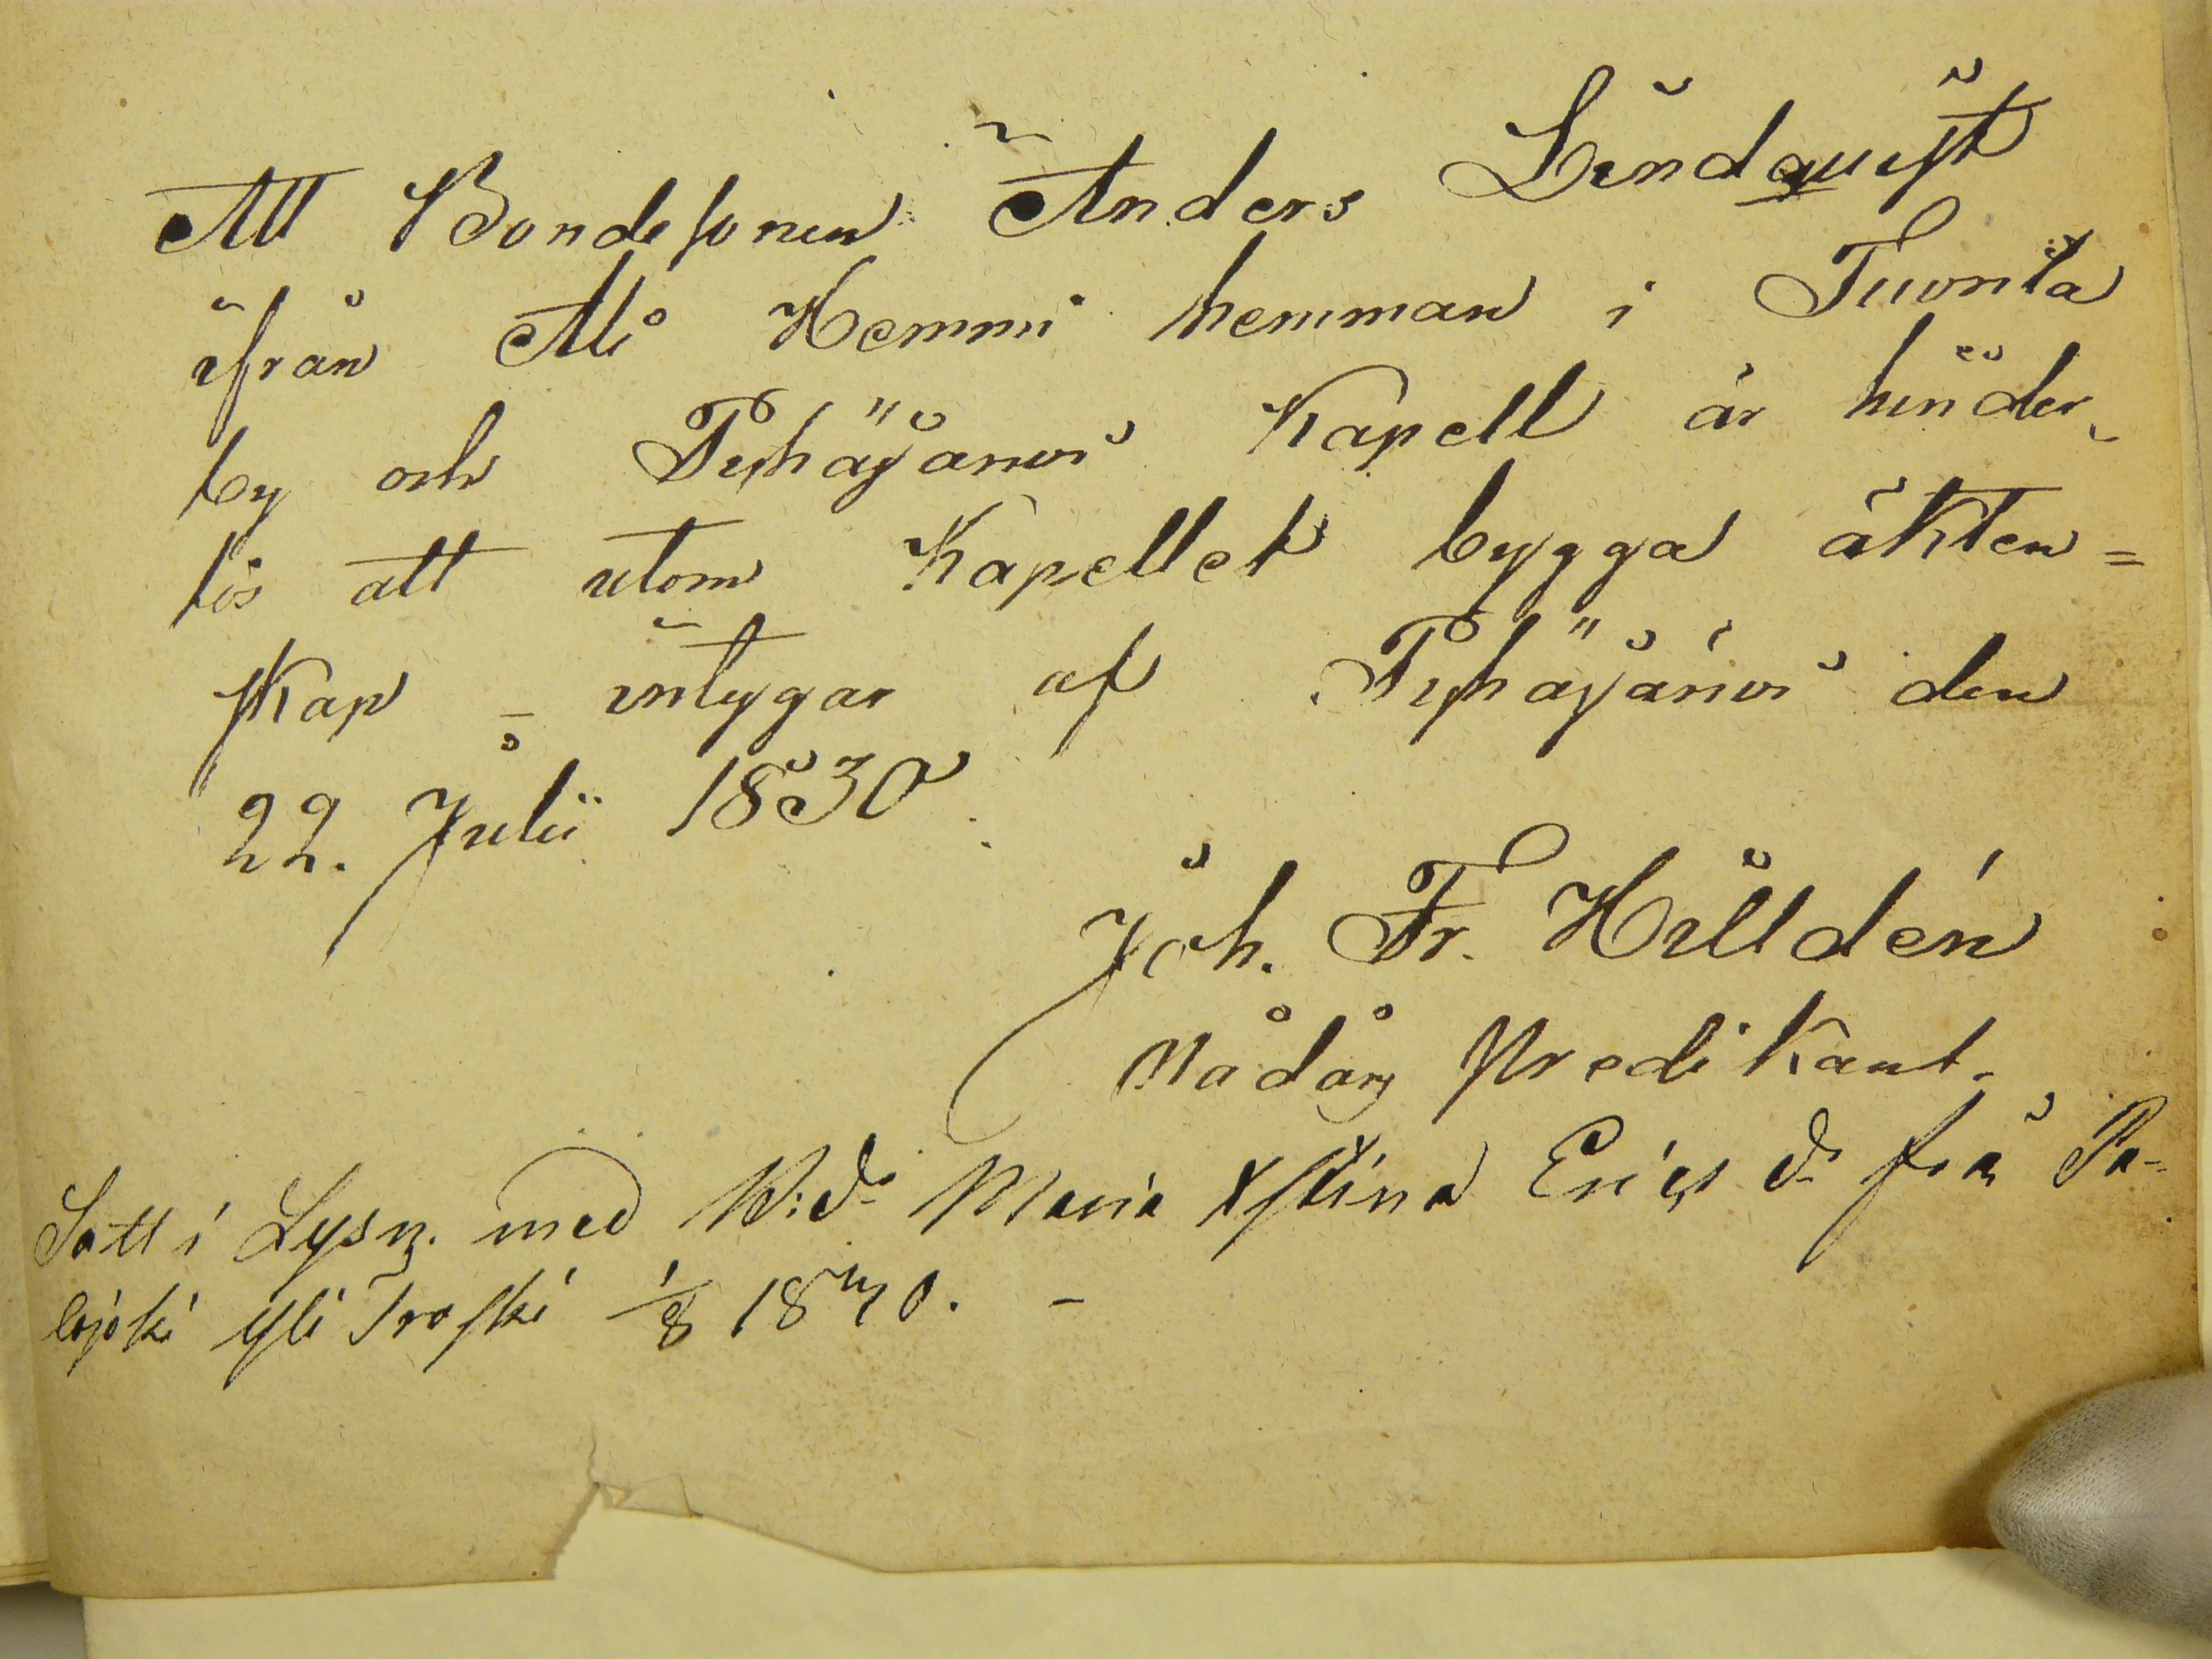 Att Bondesonen Anders Lindquist
ifrån Ali Hemmi hemman i Tuorila
by och Pyhäjänvi Kapell är hinder
lös att utom Kapellet bygga äkten=
skap – intygar af Pyhäjärvi den
22. Julii 1830.
Joh. Fr. Hilldén
Nådårs Predikant.
Satt i Lysn. med B:dr Maria Xstina Erics dr frå Pa-
lojoki Yli Trofki 1/8 1830. –